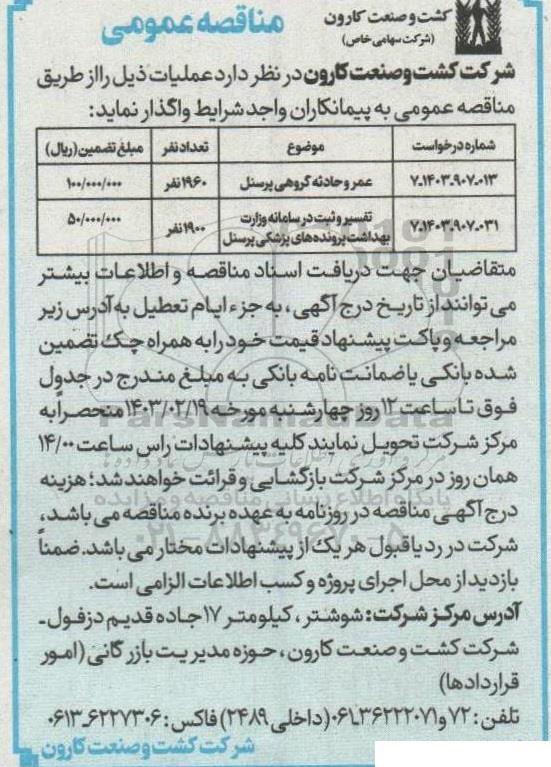 کشت و صنعت کارون
(شرکت سهامی خاص)
مناقصه عمومی
شرکت کشت و صنعت کارون در نظر دارد عملیات ذیل را از طریق
مناقصه عمومی به پیمانکاران واجد شرایط واگذار نماید:
شماره درخواست موضوع تعداد نفر مبلغ تضمین (ریال)
۷.۱۴۰۳.۹۰۷.۰۱۳ عمر و حادثه گروهی پرسنل ۱۹۶۰ نفر ۱۰۰/۰۰۰/۰۰۰
۷.۱۴۰۳.۹۰۷.۰۳۱ تفسیر و ثبت در سامانه وزارت
بهداشت پرونده های پزشکی پرسنل ۱۹۰۰ نفر ۵۰/۰۰۰/۰۰۰
متقاضیان جهت دریافت اسناد مناقصه و اطلاعات بیشتر
می توانند از تاریخ درج آگهی، به جزء ایام تعطیل به آدرس زیر
مراجعه و پاکت پیشنهاد قیمت خود را به همراه چک تضمین
شده بانکی یا ضمانت نامه بانکی به مبلغ مندرج در جدول
فوق تا ساعت ۱۲ روز چهارشنبه مورخه ۱۴۰۳/۰۲/۱۹ منحصراً به
مرکز شرکت تحویل نمایند کلیه پیشنهادات راس ساعت ۱۴/۰۰
همان روز در مرکز شرکت بازگشایی و قرائت خواهند شد؛ هزینه
درج آگهی مناقصه در روزنامه به عهده برنده مناقصه می باشد،
شرکت در رد یا قبول هر یک از پیشنهادات مختار می باشد. ضمناً
بازدید از محل اجرای پروژه و کسب اطلاعات الزامی است.
آدرس مرکز شرکت: شوشتر، کیلومتر ۱۷ جاده قدیم دزفول-
شرکت کشت و صنعت کارون، حوزه مدیریت بازرگانی (امور
قراردادها)
تلفن: ۷۲ و ۰۶۱.۳۶۲۲۲۰۷۱ (داخلی ۲۴۸۹) فاکس: ۰۶۱۳-۶۲۲۷۳۰۶
شرکت کشت و صنعت کارون
ParsNamadData
پایگاه اطلاع رسانی مناقصه و مزایده
۰۲۱-۸۸۳۴۹۶۷۰-۵